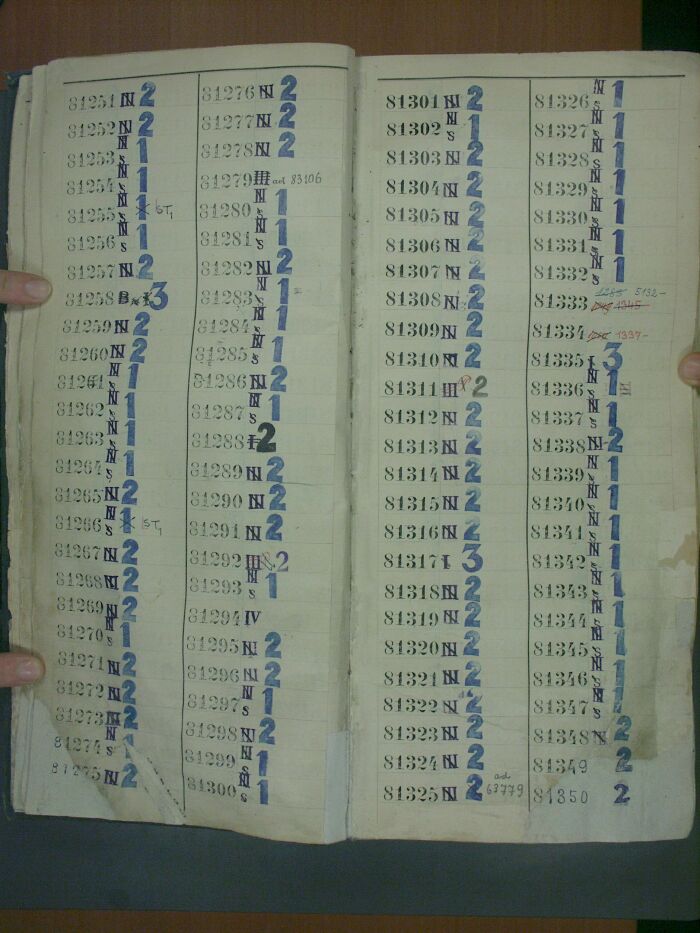 81251 IN 2
81252 IN 2
81253 IN s 1
81254 IN s 1
81255 IN s 1 ST1
81256 IN s 1
81257 IN 2
81258 3
81259 IN 2
81260 IN 2
81261 IN s 1
81262 IN s 1
81263 IN s 1
81264 IN s 1
81265 IN 2
81266 IN s 1 ST1
81267 IN 2
81268 IN 2
81269 IN 2
81270 IN s 1
81271 IN 2
81272 IN 2
81273 IN 2
81274 IN s 1
81275 IN 2
81276 IN 2
81277 IN 2
81278 IN 2
81279 III ad 83106
81280 IN s 1
81281 IN s 1
81282 IN 2
81283 IN s 1
81284 IN s 1
81285 IN s 1
81286 IN 2
81287 IN s 1
81288 I 2
81289 IN 2
81290 IN 2
81291 IN 2
81292 III 2
81293 IN s 1
81294 IV
81295 IN 2
81296 IN 2
81297 IN s 1
81298 IN 2
81299 IN s 1
81300 IN s 1
81301 IN 2
81302 IN s 1
81303 IN 2
81304 IN 2
81305 IN 2
81306 IN 2
81307 IN 2
81308 IN 2
81309 IN 2
81310 IN 2
81311 III 2
81312 IN 2
81313 IN 2
81314 IN 2
81315 IN 2
81316 IN 2
81317 I 3
81318 IN 2
81319 IN 2
81320 IN 2
81321 IN 2
81322 IN 2
81323 IN 2
81324 IN 2
81325 IN 2 ad 63779
81326 IN s 1
81327 IN s 1
81328 IN s 1
81329 IN s 1
81330 IN s 1
81331 IN s 1
81332 IN s 1
81333 1285 5132- 1345
81334 1337-
81335 I 3
81336 IN s 1
81337 IN s 1
81338 IN 2
81339 IN s 1
81340 IN s 1
81341 IN s 1
81342 IN s 1
81343 IN s 1
81344 IN s 1
81345 IN s 1
81346 IN s 1
81347 IN s 1
81348 IN 2
81349 2
81350 2